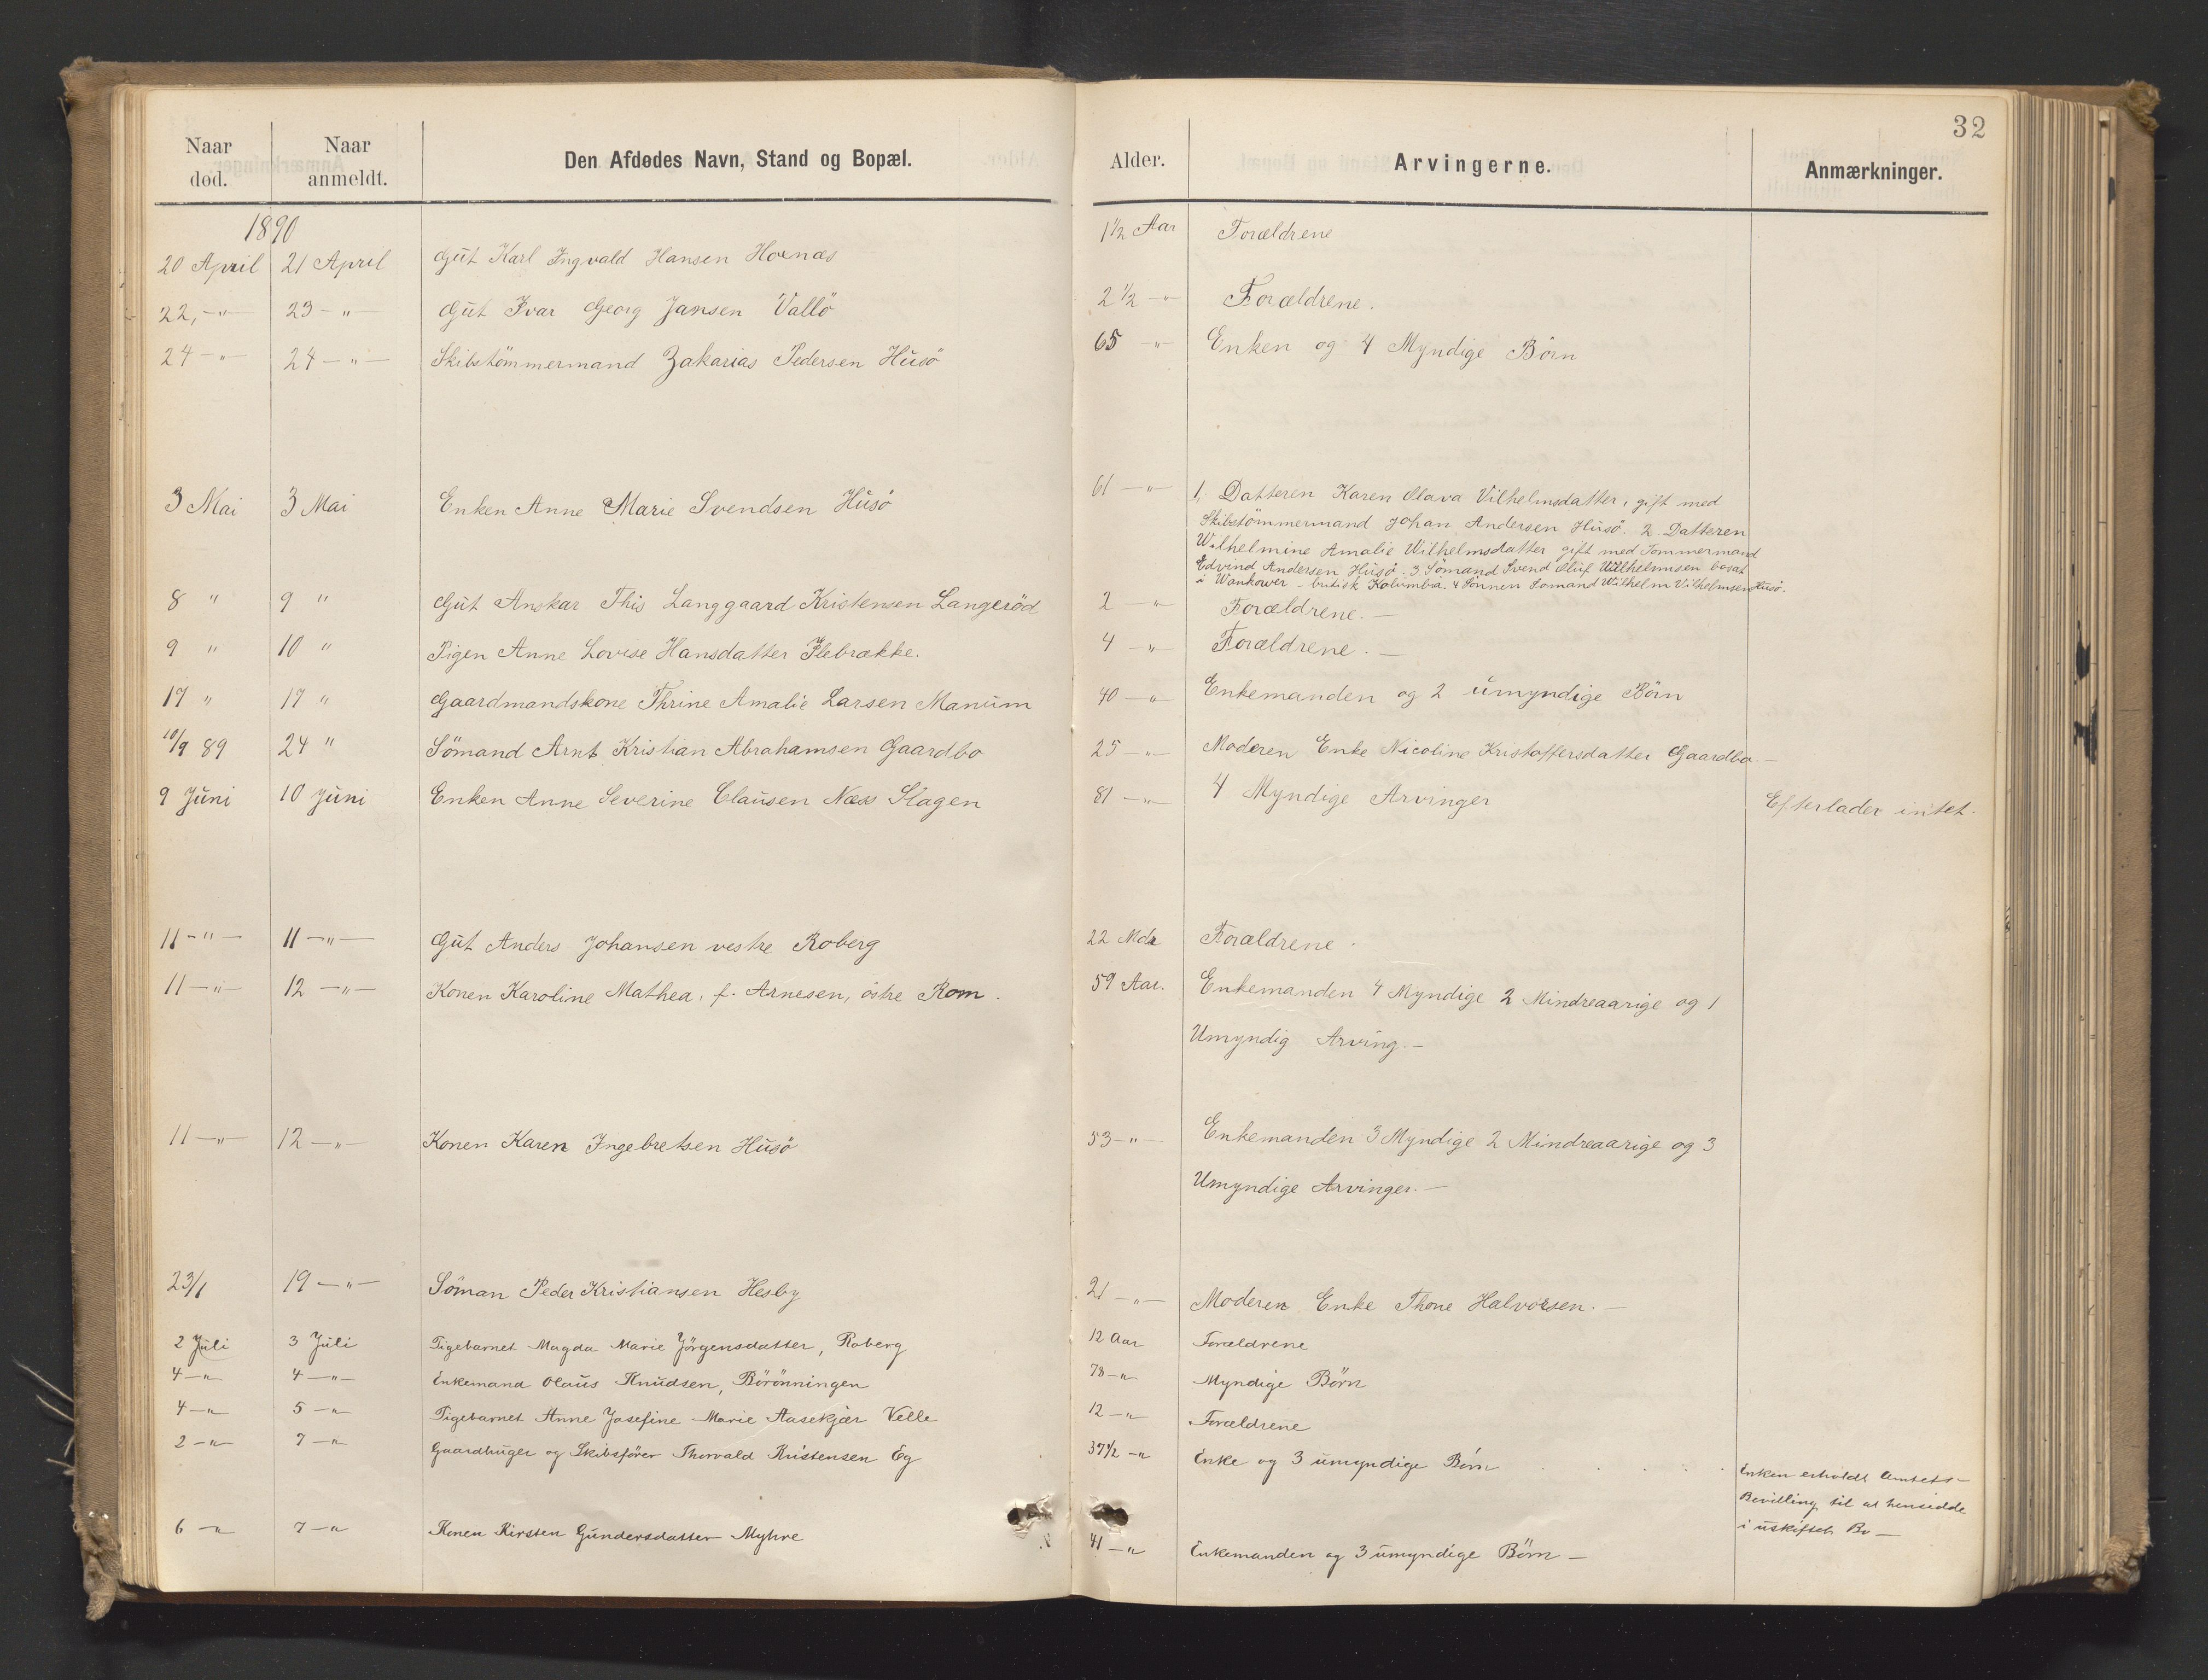 32
Naar død. Naar anmeldt. Den Afdødes Navn, Stand og Bopæl. Alder. Arvingerne. Anmærkninger.
1890
20 April 21 April Gut Karl Ingvald Hansen Hornæs 1 1/2 Aar Forældrene
22, -"- 23 -"- Gut Ivar Georg Jansen Vallö 2 1/2 -"- Forældrene.
24 -"- 24 -"- Skibstömmermand Zakarias Pedersen Husö 65 -"- Enken og 4 Myndige Börn
3 Mai 3 Mai Enken Anne Marie Svendsen Husö 61 -"- 1, Datteren Karen Olava Vilhelmsdatter, gift med
Skibstömmermand Johan Andersen Husö. 2. Datteren
Wilhelmine Amalie Wilhelmsdatter gift med Tommermand
Edvind Andersen Husö. 3. Sömand Svend Oluf Wilhelmsen bosat
i Wankower - britisk Kolumbia. 4 Sönnen Somand Wilhelm Vilhelmsen Husö.
8 " 9 " Gut Anskar This Langgaard Kristensen Langeröd 2 -"- Forældrene. -
9 " 10 " Pigen Anne Lovise Hansdatter Ilebrække. 4 -"- Forældrene. -
17 " 17 " Gaardmandskone Thrine Amalie Larsen Manum 40 -"- Enkemanden og 2 umyndige Börn
10/9 89 24 " Sömand Arnt Kristian Abrahamsen Gaardbo 25 -"- Moderen Enke Nicoline Kristoffersdatter Gaardbo. -
9 Juni 10 Juni Enken Anne Severine Clausen Næss Slagen 81 -"- 4 Myndige Arvinger Efterlader intet.
11 -"- 11 -"- Gut Anders Johansen vestre Roberg 22 Mdr Forældrene.
11 -"- 12 -"- Konen Karoline Mathea, f. Arnesen, östre Rom. 59 Aar. Enkemanden 4 Myndige 2 Mindreaarige og 1
Umyndig Arving. -
11 -"- 12 -"- Konen Karen Ingebretsen Husö 53 -"- Enkemanden 3 Myndige 2 Mindreaarige og 3
Umyndige Arvinger. -
23/1 19 -"- Söman Peder Kristiansen Hesby 21 -"- Moderen Enke Thone Halvorsen. -
2 Juli 3 Juli Pigebarnet Magda Marie Jörgensdatter, Roberg 12 Aar Forældrene
4 -"- 4 -"- Enkemand Olaus Knudsen, Börönningen 78 -"- Myndige Börn
4 -"- 5 -"- Pigebarnet Anne Josefine Marie Aasekjær Velle 12 -"- Forældrene
2 -"- 7 -"- Gaardbruger og Skibsförer Thorvald Kristensen Eg 37 1/2 -"- Enke og 3 umyndige Börn Enken erholdt Amtets-
Bevilling til at hensidde
i uskiftet Bo -
6 -"- 7 -"- Konen Kirsten Gundersdatter Myhre 41 -"- Enkemanden og 3 umyndige Börn -